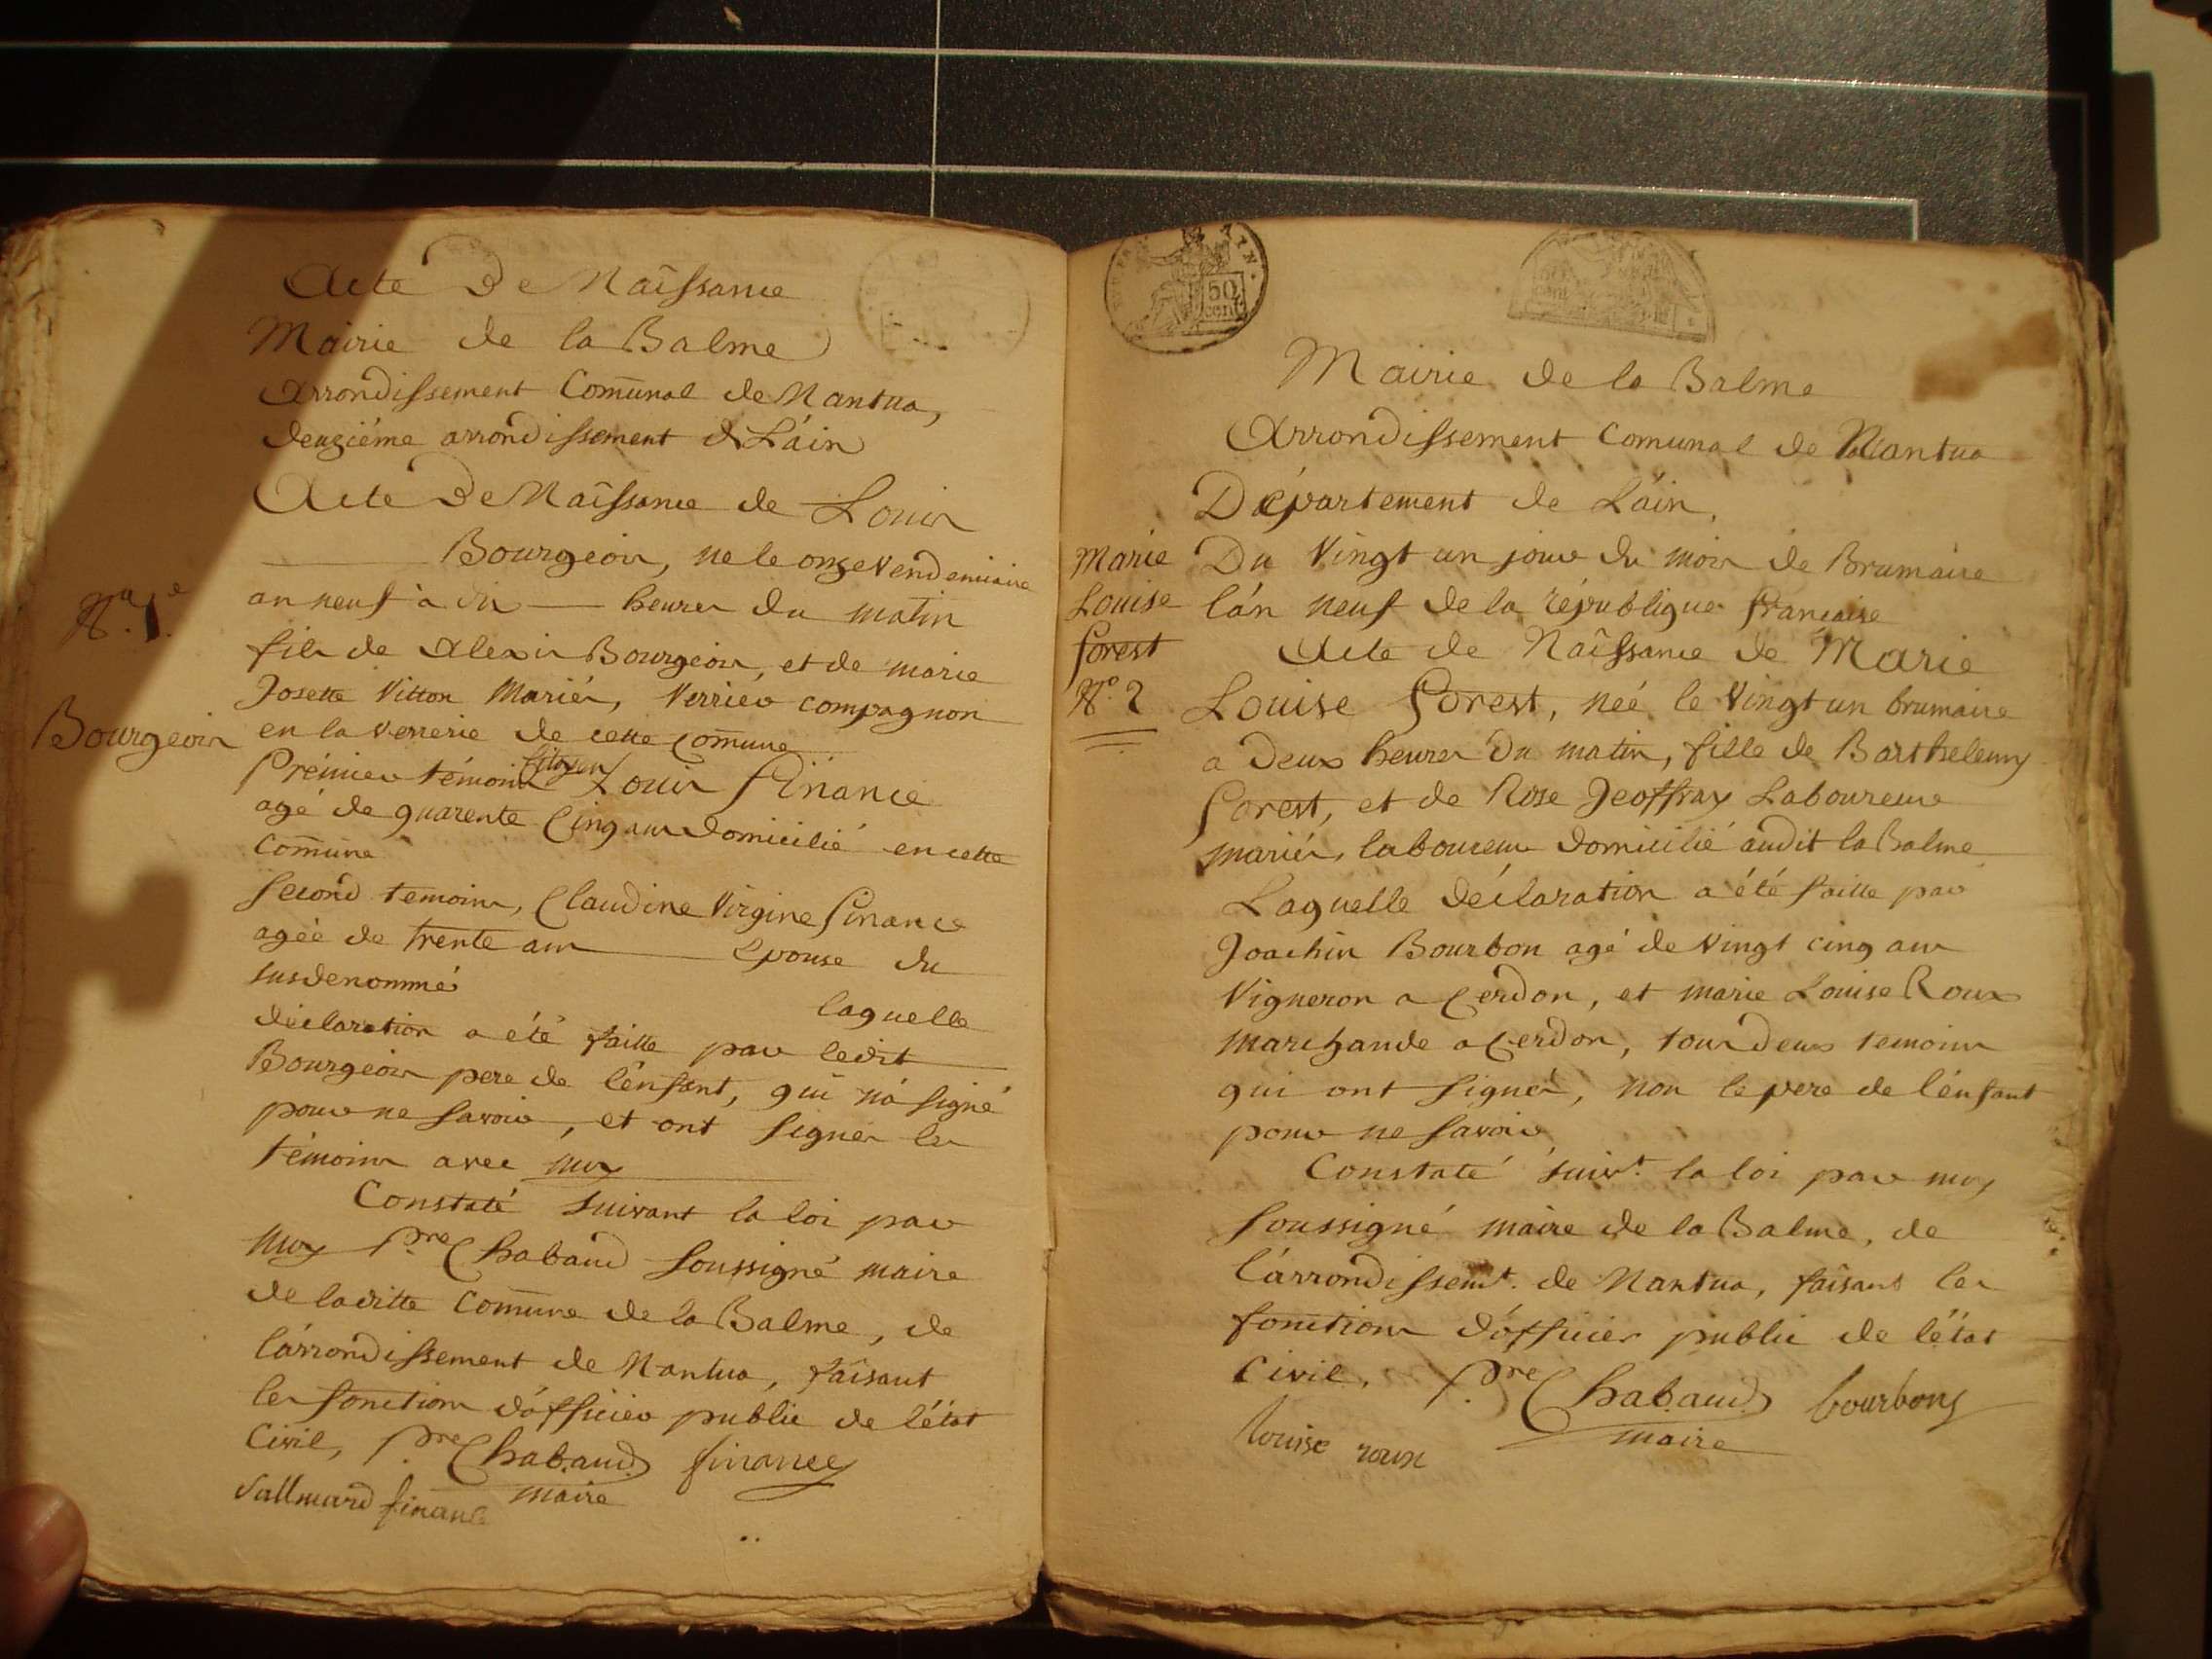 Acte De Naîssance
Mairie de la Balme
Arrondissement Comunal de Nantua,
deuziéme arrondissement de L'áin
Acte De Naîssance de Louis
Bourgeois, ne le onze Vendemiaire
an neuf à dix heures du matin
fils de Alexis Bourgeois, et de marie
Josette Vitton Mariés, Verrier compagnon
en la verrerie de cette Comune
N° 1e
Bourgeois
Prémier témoins Citoyen Louis Finance
agé de quarente Cinq ans domicilié en cette
Comune
Second temoins, Claudine Virgine Finance
agée de trente ans Epouse du
susdenommé
laquelle
déclaration a été faitte par ledit
Bourgeois pere de l'énfant, qui n'á signé
pour ne savoir, et ont signés les
témoins avec moy
Constaté suivant la loi par
moy Pre Chabaud soussigné maire
de laditte Comune de la Balme, de
l'árrondissement de Nantua, faisant
les fonctions d'ófficier public de l'état
Civil, Pre Chabaud finance
maire
Vallmard finance
50
cent
Mairie de la Balme
Arrondissement Comunal de Nantua
Département de L'áin,
Marie
Louise
forest
N° 2
Du Vingt un jour du mois de Brumaire
l'án neuf de la république française
Acte de Naîssance de Marie
Louise Forest, neé le Vingt un brumaire
a Deux heures du matin, fille de Barthelemy
Forest, et de Rose Jeoffray Laboureur
mariés, laboureur domicilié audit la Balme
Laquelle déclaration a été faitte par
Joachin Bourbon agé de Vingt cinq ans
Vigneron a Cerdon, et marie Louise Roux
marchande a Cerdon, tous deux temoins
qui ont signés, non le pere de l'énfant
pour ne savoir
Constaté suivt. la loi par moy
soussigné maire de la Balme, de
l'árrondissemt. de Nantua, faisant les
fonctions d'ófficier public de l'état
Civil, Pre Chabaud bourbon
maire
louise roux